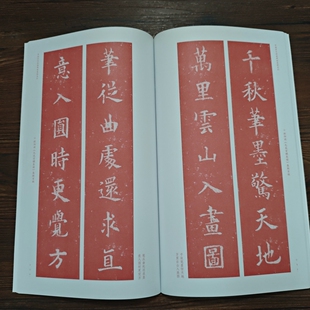 千秋筆墨驚天地
萬里雲山入畫圖
筆從曲處還求直
意入圓時更覺方